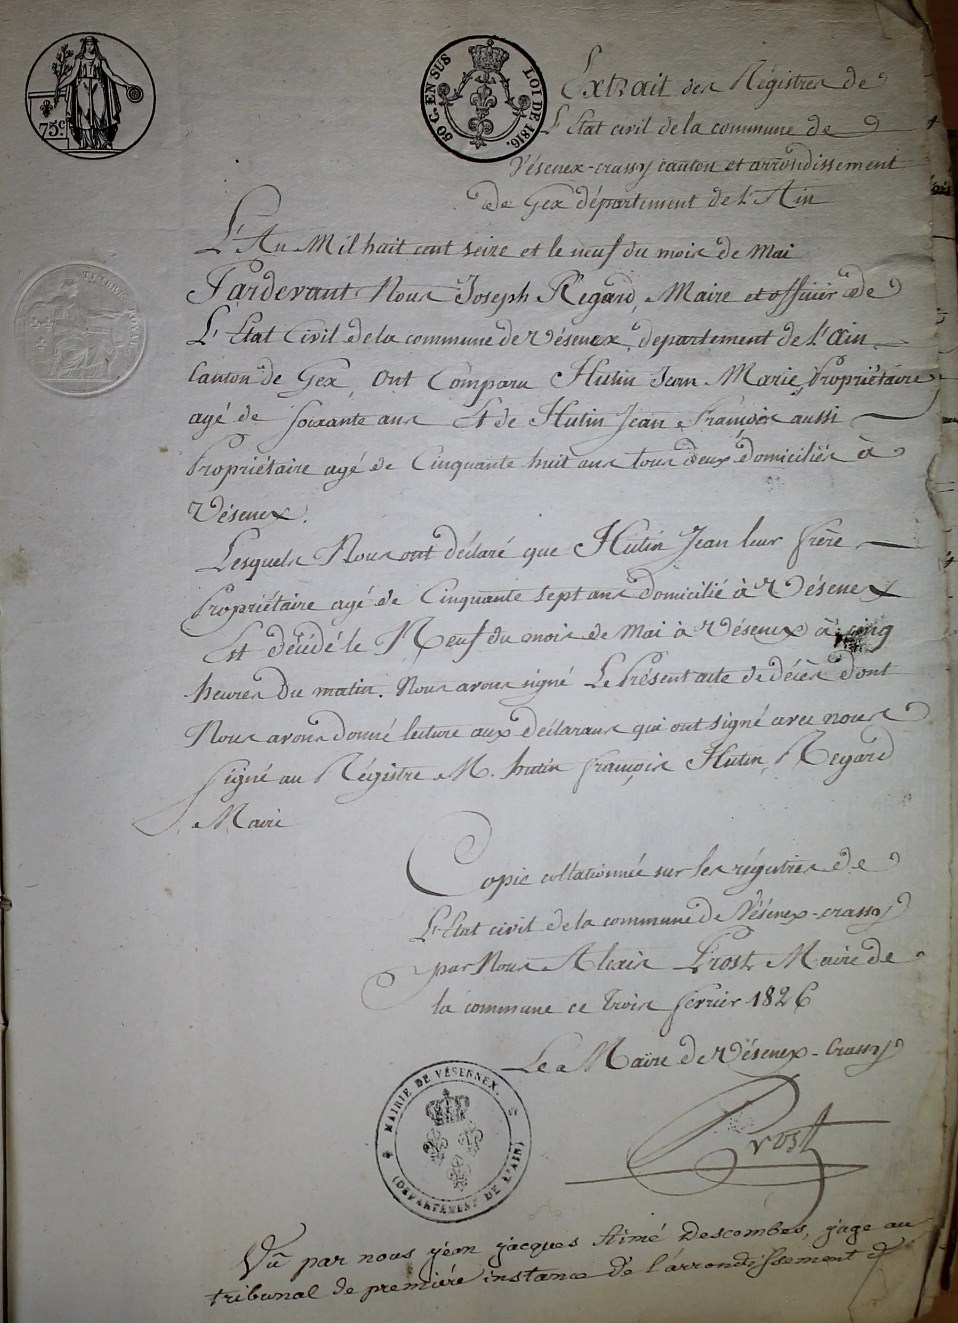 75.c
50 C. EN SUS LOI DE 1816.
TIMBRE ROYAL
Extrait des Régistres de
L'Etat civil de la commune de
Vésenex-crassy canton et arrondissement
de Gex département de L'Ain
L'An Mil huit cent seize et le neuf du mois de Mai
Pardevant Nous Joseph Regard, Maire et officier de
L'Etat Civil de la commune de Vésenex, departement de l'Ain
Canton de Gex, Ont Comparu Hutin Jean Marie, Propriétaire
agé de soixante ans Et de Hutin Jean François aussi
Propriétaire agé de Cinquante huit ans tous deux domiciliés à
Vésenex.
Lesquels Nous ont déclaré que Hutin Jean leur frère
Propriétaire agé de Cinquante sept ans domicilié à Vésenex
Est décédé le Neuf du mois de Mai à Vésenex à cinq
heures du matin. Nous avons signé Le Présent acte de décès dont
Nous avons donné lecture aux déclarans qui ont signé avec nous
signé au Régistre M. hutin françois Hutin, Regard
Maire
Copie collationnée sur les régistres de
L'Etat civil de la commune de Vésenex-crassy
par Nous Alexis Prost Maire de
la commune ce trois fevrier 1826
Le Maire de Vésenex-Crassy
Prost
MAIRIE DE VÉSENNEX.
(DÉPARTEMENT DE L'AIN)
Vu par nous jean jacques Aimé Descombes, juge au
tribunal de première instance de l'arrondissement d